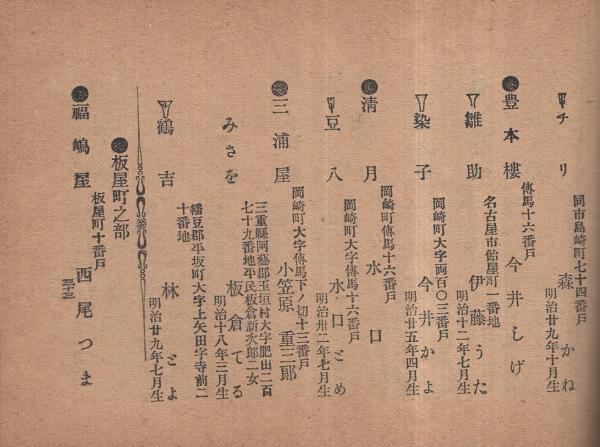 チリ
同市島崎町七十四番戸
森かね
明治廿九年十月生
豊本樓
傳馬十六番戸
今井しげ
雛助
名古屋市飴屋町一番地
伊藤うた
明治十二年七月生
染子
岡崎町大字両百〇三番戸
今井かよ
明治廿五年四月生
淸月
岡崎町傳馬十六番戸
水口
豆八
岡崎町大字傳馬十六番戸
水口とめ
明治卅二年七月生
三浦屋
岡崎町大字傳馬下ノ切十三番戸
小笠原重三郎
みさを
三重縣阿藝郡玉垣村大字肥出二百
七十九番地平民板倉新次郎二女
板倉てる
明治十八年三月生
鶴吉
幡豆郡平坂町大字上矢田字寺前二
十番地
林とよ
明治廿九年七月生
板屋町之部
福嶋屋
板屋町十番戸
西尾つま